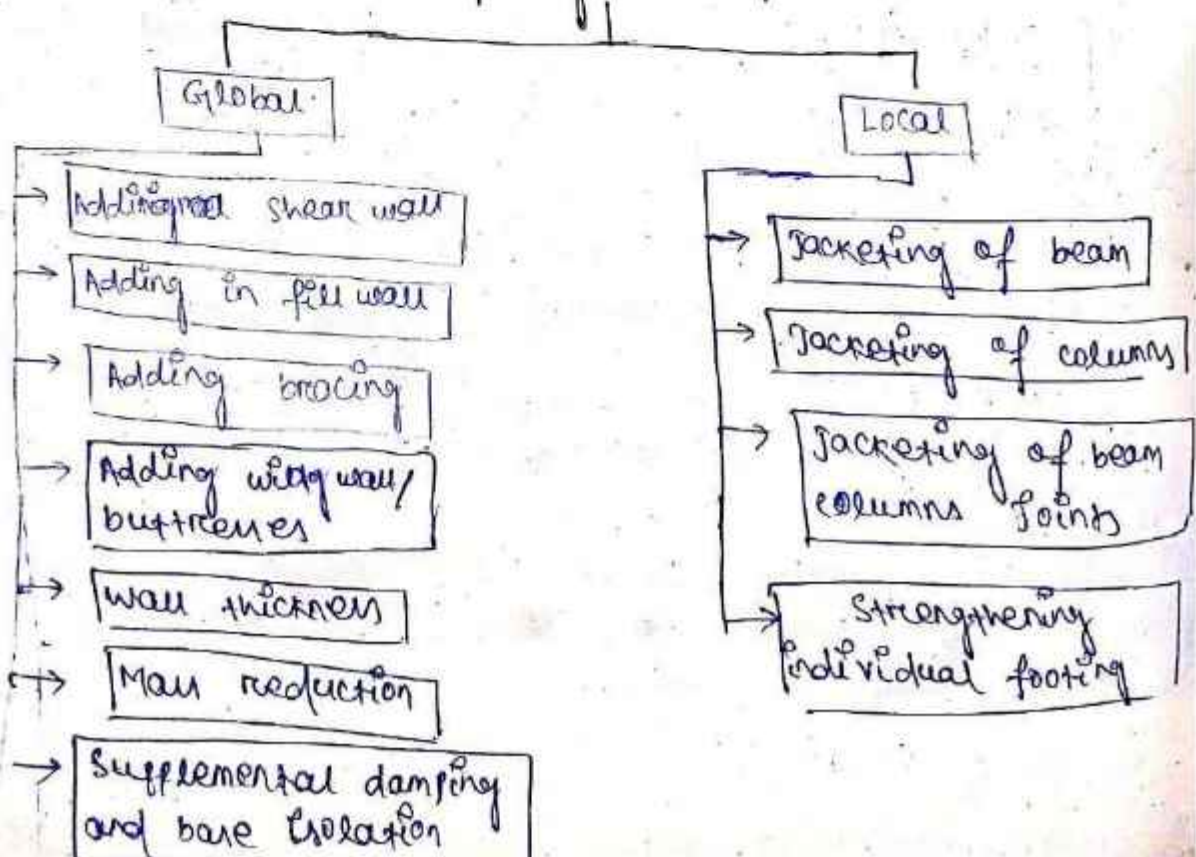 Global
Adding shear wall
Adding in fill wall
Adding bracing
Adding wing wall/
buttresses
Wall thickness
Mass reduction
Supplemental damping
and base isolation
Local
Jacketing of beam
Jacketing of columns
Jacketing of beam
columns joints
Strengthening
individual footing